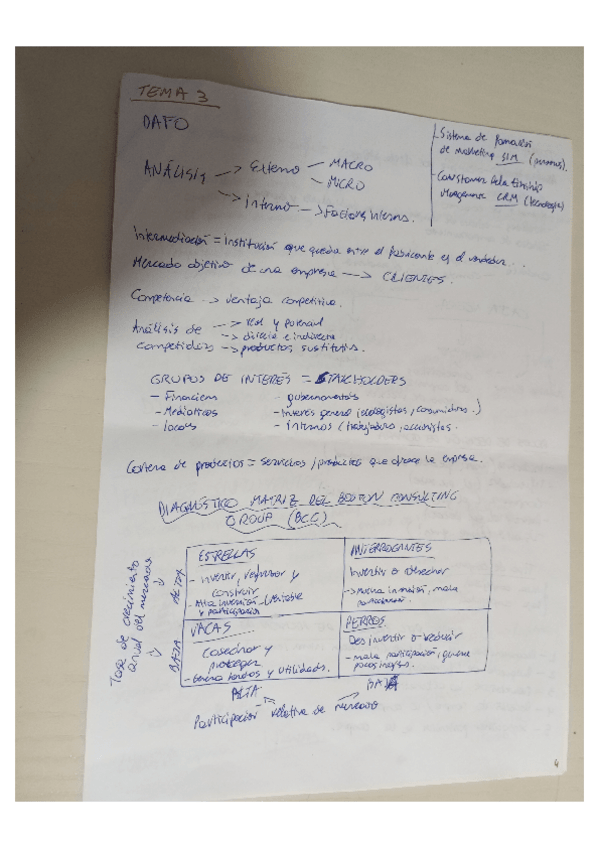 TEMA 3
DAFO
Sistema de
de marketing SIM
CRM (tecnología)
ANÁLISIS → Externo — MACRO
— MICRO
→ interno → Factores internos.
Intermediación = Institución que queda entre el fabricante es el vendedor...
Mercado objetivo de una empresa → CLIENTES.
Competencia → ventaja competitiva.
Análisis de competidores → real y potencial
→ directa e indirecta
→ productos sustitutivos.
GRUPOS DE INTERÉS = STAKHOLDERS
— Financieros
— Mediáticos
— locales
— gubernamentales
— Interés general (ecologistas, consumidores.)
— internos (trabajadores, accionistas.
Cartera de productos = servicios / productos que ofrece la empresa.
DIAGNÓSTICO MATRIZ DEL BOSTON CONSULTING
GROUP (BCG)
Tasa de crecimiento
anual del mercado
ALTA
BAJA
ESTRELLAS
- invertir, y
construir
- Alta inversión
y participación
INTERROGANTES
Invertir o
→ mala
participación.
VACAS
Cosechar y
proteger
- Genera fondos y utilidades.
PERROS
Desinvertir o reducir
- mala participación, genera
pocos
ALTA
BAJA
Participación relativa de mercado
4